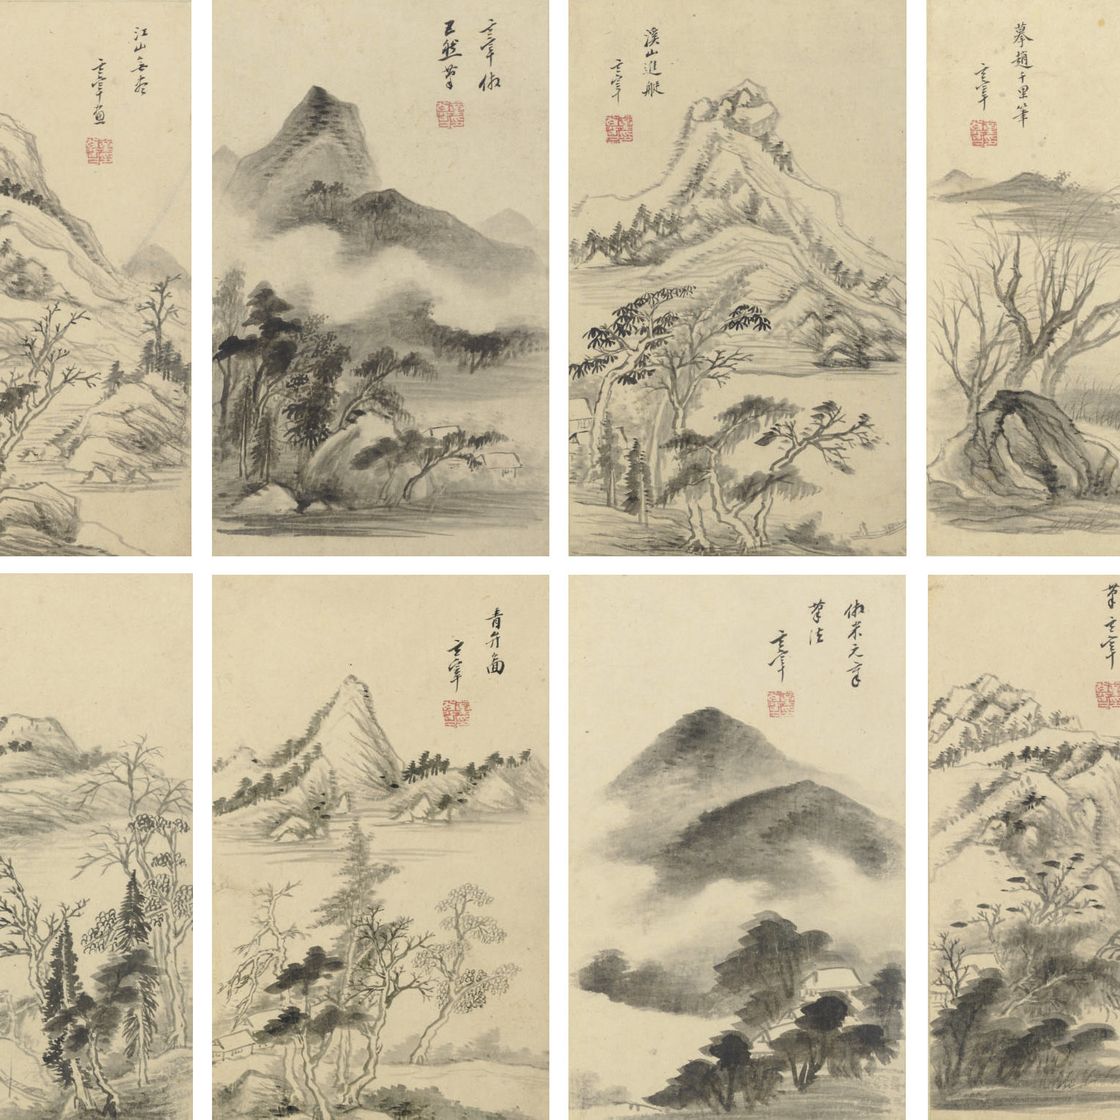 江山無盡
玄宰畫
玄宰倣
巨然筆
溪山進艇
玄宰
摹趙千里筆
玄宰
青弁圖
玄宰
倣米元章
筆法
玄宰
筆玄宰